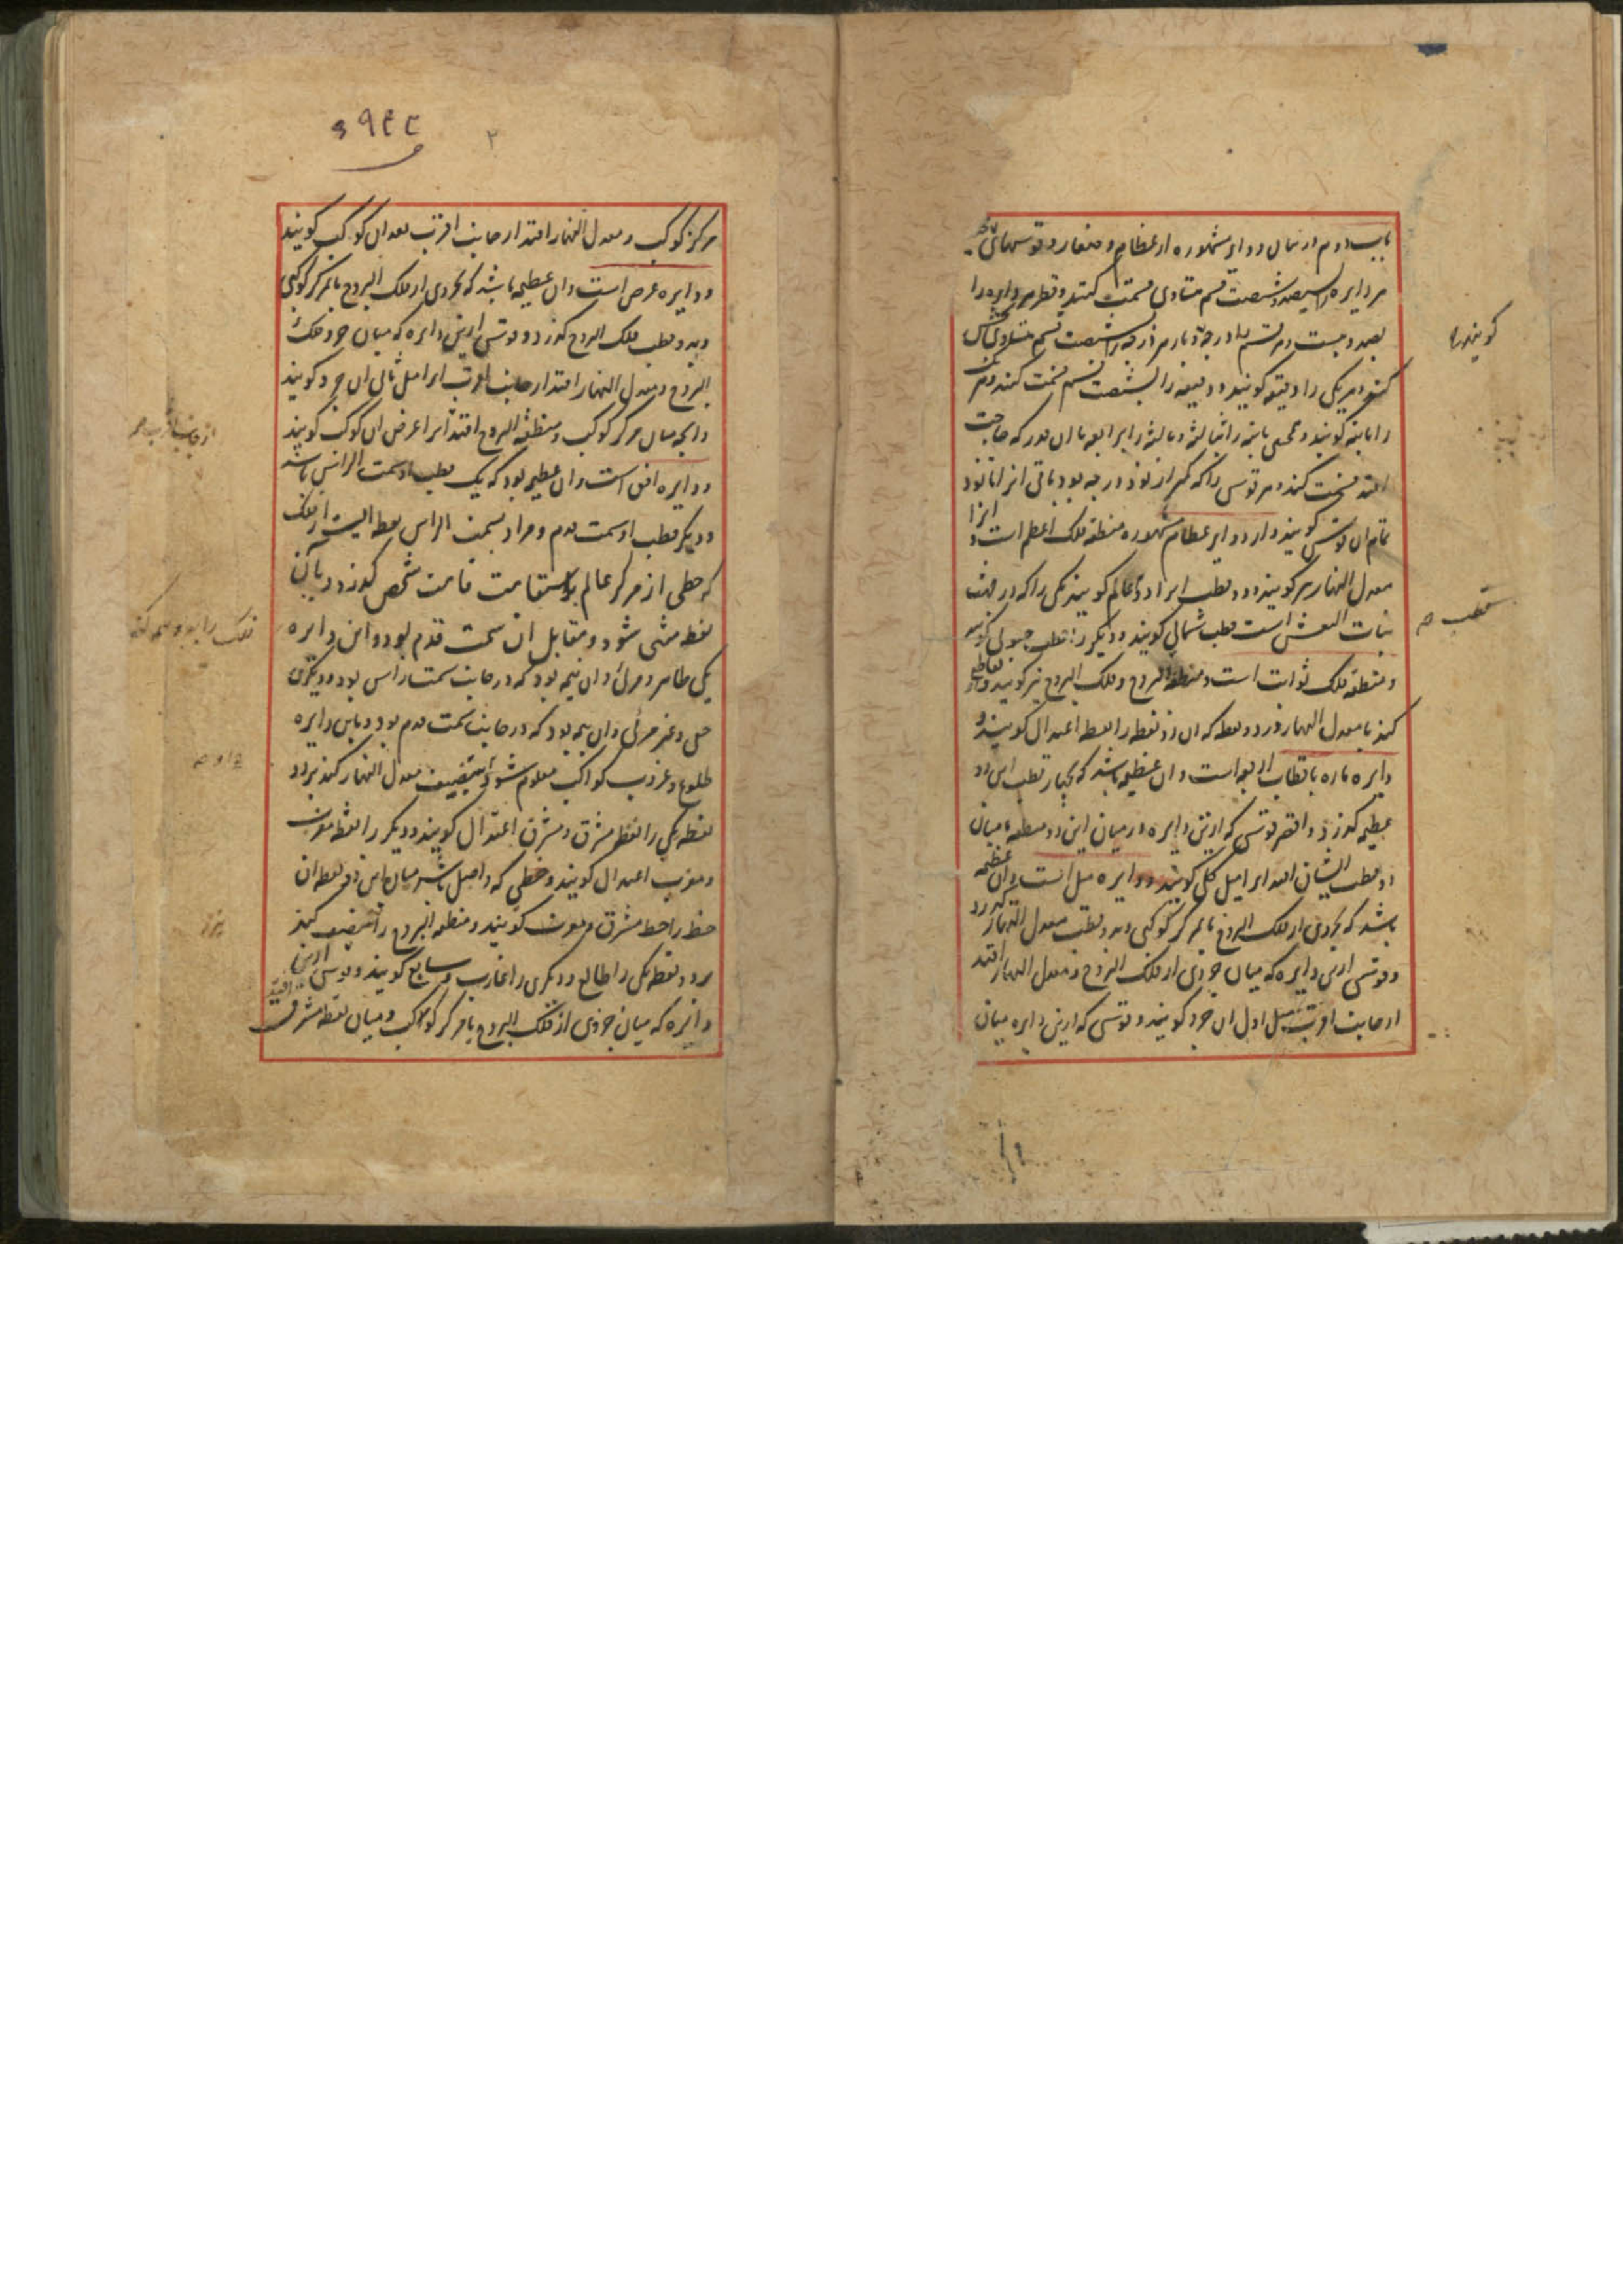 باب دوم در بیان دوایر مشهوره از عظام و صغار و قوسهای
هر دایره را بسیصد و شصت قسم متساوی قسمت کنند و قطر هر دایره را
بصد و بیست و هر قسم را درجه و باز هر درجه را بشصت قسم متساوی
کنند و هر یکی را دقیقه گویند و دقیقه را بشصت قسم قسمت کنند و هر یک
را ثانیه گویند و همچنین ثانیه را بثالثه و ثالثه را برابعه تا آن قدر که حاجت
افتد قسمت کنند و هر قوسی را که کمتر از نود درجه بود باقی آنرا تا نود
تمام آن قوس گویند و از دوایر عظام مشهوره منطقه فلک اعظم است و آنرا
معدل النهار نیز گویند و دو قطب او را دو قطب عالم گویند یکی را که در جهت
بنات النعش است قطب شمالی گویند و دیگر را قطب جنوبی گویند
و منطقه فلک ثوابت است و منطقه البروج و فلک البروج نیز گویند و تقاطع
کند با معدل النهار بر دو نقطه که آن دو نقطه را نقطه اعتدال گویند و
دایره ماره باقطاب اربعه است و آن عظیمه باشد که بچهار قطب این دو
عظیمه گذرد و اقصر قوسی که ازین دایره در میان این دو منطقه یا میان
دو قطب ایشان افتد آنرا میل کلی گویند و دایره میل است و آن عظیمه
باشد که بجزوی از فلک البروج یا بمرکز کوکبی و بدو قطب معدل النهار گذرد
و قوسی ازین دایره که میان جزوی از فلک البروج و معدل النهار افتد
از جانب اقرب میل اول آن جزو گویند و قوسی که ازین دایره میان
گویند
قطب صح
۲
مرکز کوکب و معدل النهار افتد از جانب اقرب بعد آن کوکب گویند
و دایره عرض است و آن عظیمه باشد که بجزوی از فلک البروج یا بمرکز کوکبی
و بدو قطب فلک البروج گذرد و قوسی ازین دایره که میان جزو فلک
البروج و معدل النهار افتد از جانب اقرب آنرا میل ثانی آن جزو گویند
و آنچه میان مرکز کوکب و منطقه البروج افتد آنرا عرض آن کوکب گویند
و دایره افق است و آن عظیمه بود که یک قطب او سمت الراس باشد
و دیگر قطب او سمت قدم و مراد بسمت الراس نقطه ایست از فلک
که خطی از مرکز عالم بر استقامت قامت شخص گذرد و بآن
نقطه منتهی شود و مقابل آن سمت قدم بود و این دایره
یکی ظاهر و مرئی و آن نیمه بود که در جانب سمت راس بود و دیگری
خفی و غیر مرئی و آن نیمه بود که در جانب سمت قدم بود و باین دایره
طلوع و غروب کواکب معلوم شود و تنصیف معدل النهار کند بر دو
نقطه یکی را نقطه مشرق و مشرق اعتدال گویند و دیگر را نقطه مغرب
و مغرب اعتدال گویند و خطی که واصل باشد میان این دو نقطه آن
خط را خط مشرق و مغرب گویند و منطقه البروج را تنصیف کند
بر دو نقطه یکی را طالع و دیگری را غارب و سابع گویند و قوسی ازین
دایره که میان جزوی از فلک البروج یا مرکز کوکب و میان نقطه مشرق افتد
از جانب اقرب صح
فلک را بدو نیمه کند